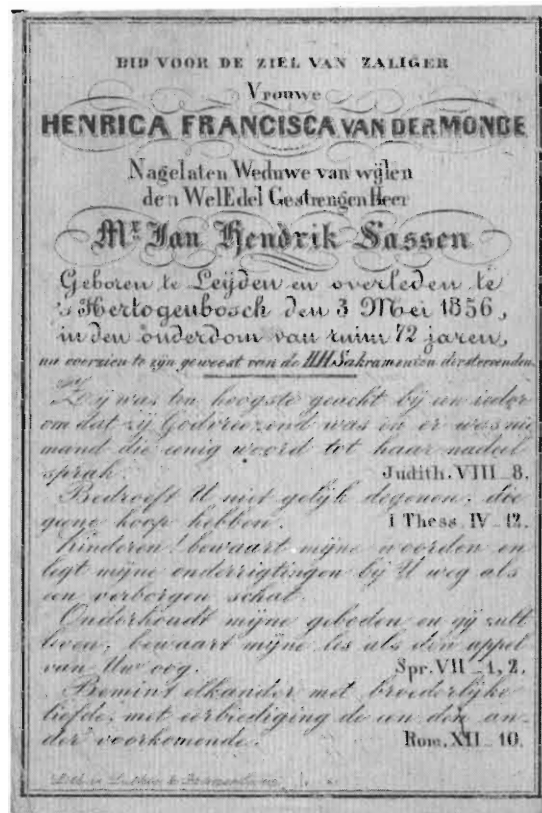 BID VOOR DE ZIEL VAN ZALIGER
Vrouwe
HENRICA FRANCISCA VAN DER MONDE
Nagelaten Weduwe van wijlen
den WelEdel Gestrengen Heer
Mr. Jan Hendrik Sassen
Geboren te Leijden en overleden te
's Hertogenbosch den 3 Mei 1856,
in den ouderdom van ruim 72 jaren,
na voorzien te zijn geweest van de HH. Sakramenten der stervenden.
Zij was ten hoogste geacht bij een ieder
om dat zij Godvreezend was en er was nie
mand die eenig woord tot haar nadeel
sprak. Judith. VIII_8.
Bedroeft U niet gelijk degenen, die
geene hoop hebben. I Thess. IV_12.
Kinderen! bewaart mijne woorden en
legt mijne onderrigtingen bij U weg als
een verborgen schat.
Onderhoudt mijne geboden en gij zult
leven, bewaart mijne les als den appel
van Uw oog. Spr. VII_1, 2.
Bemint elkander met broederlijke
liefde, met eerbiediging de een den an-
der voorkomende. Rom. XII_10.